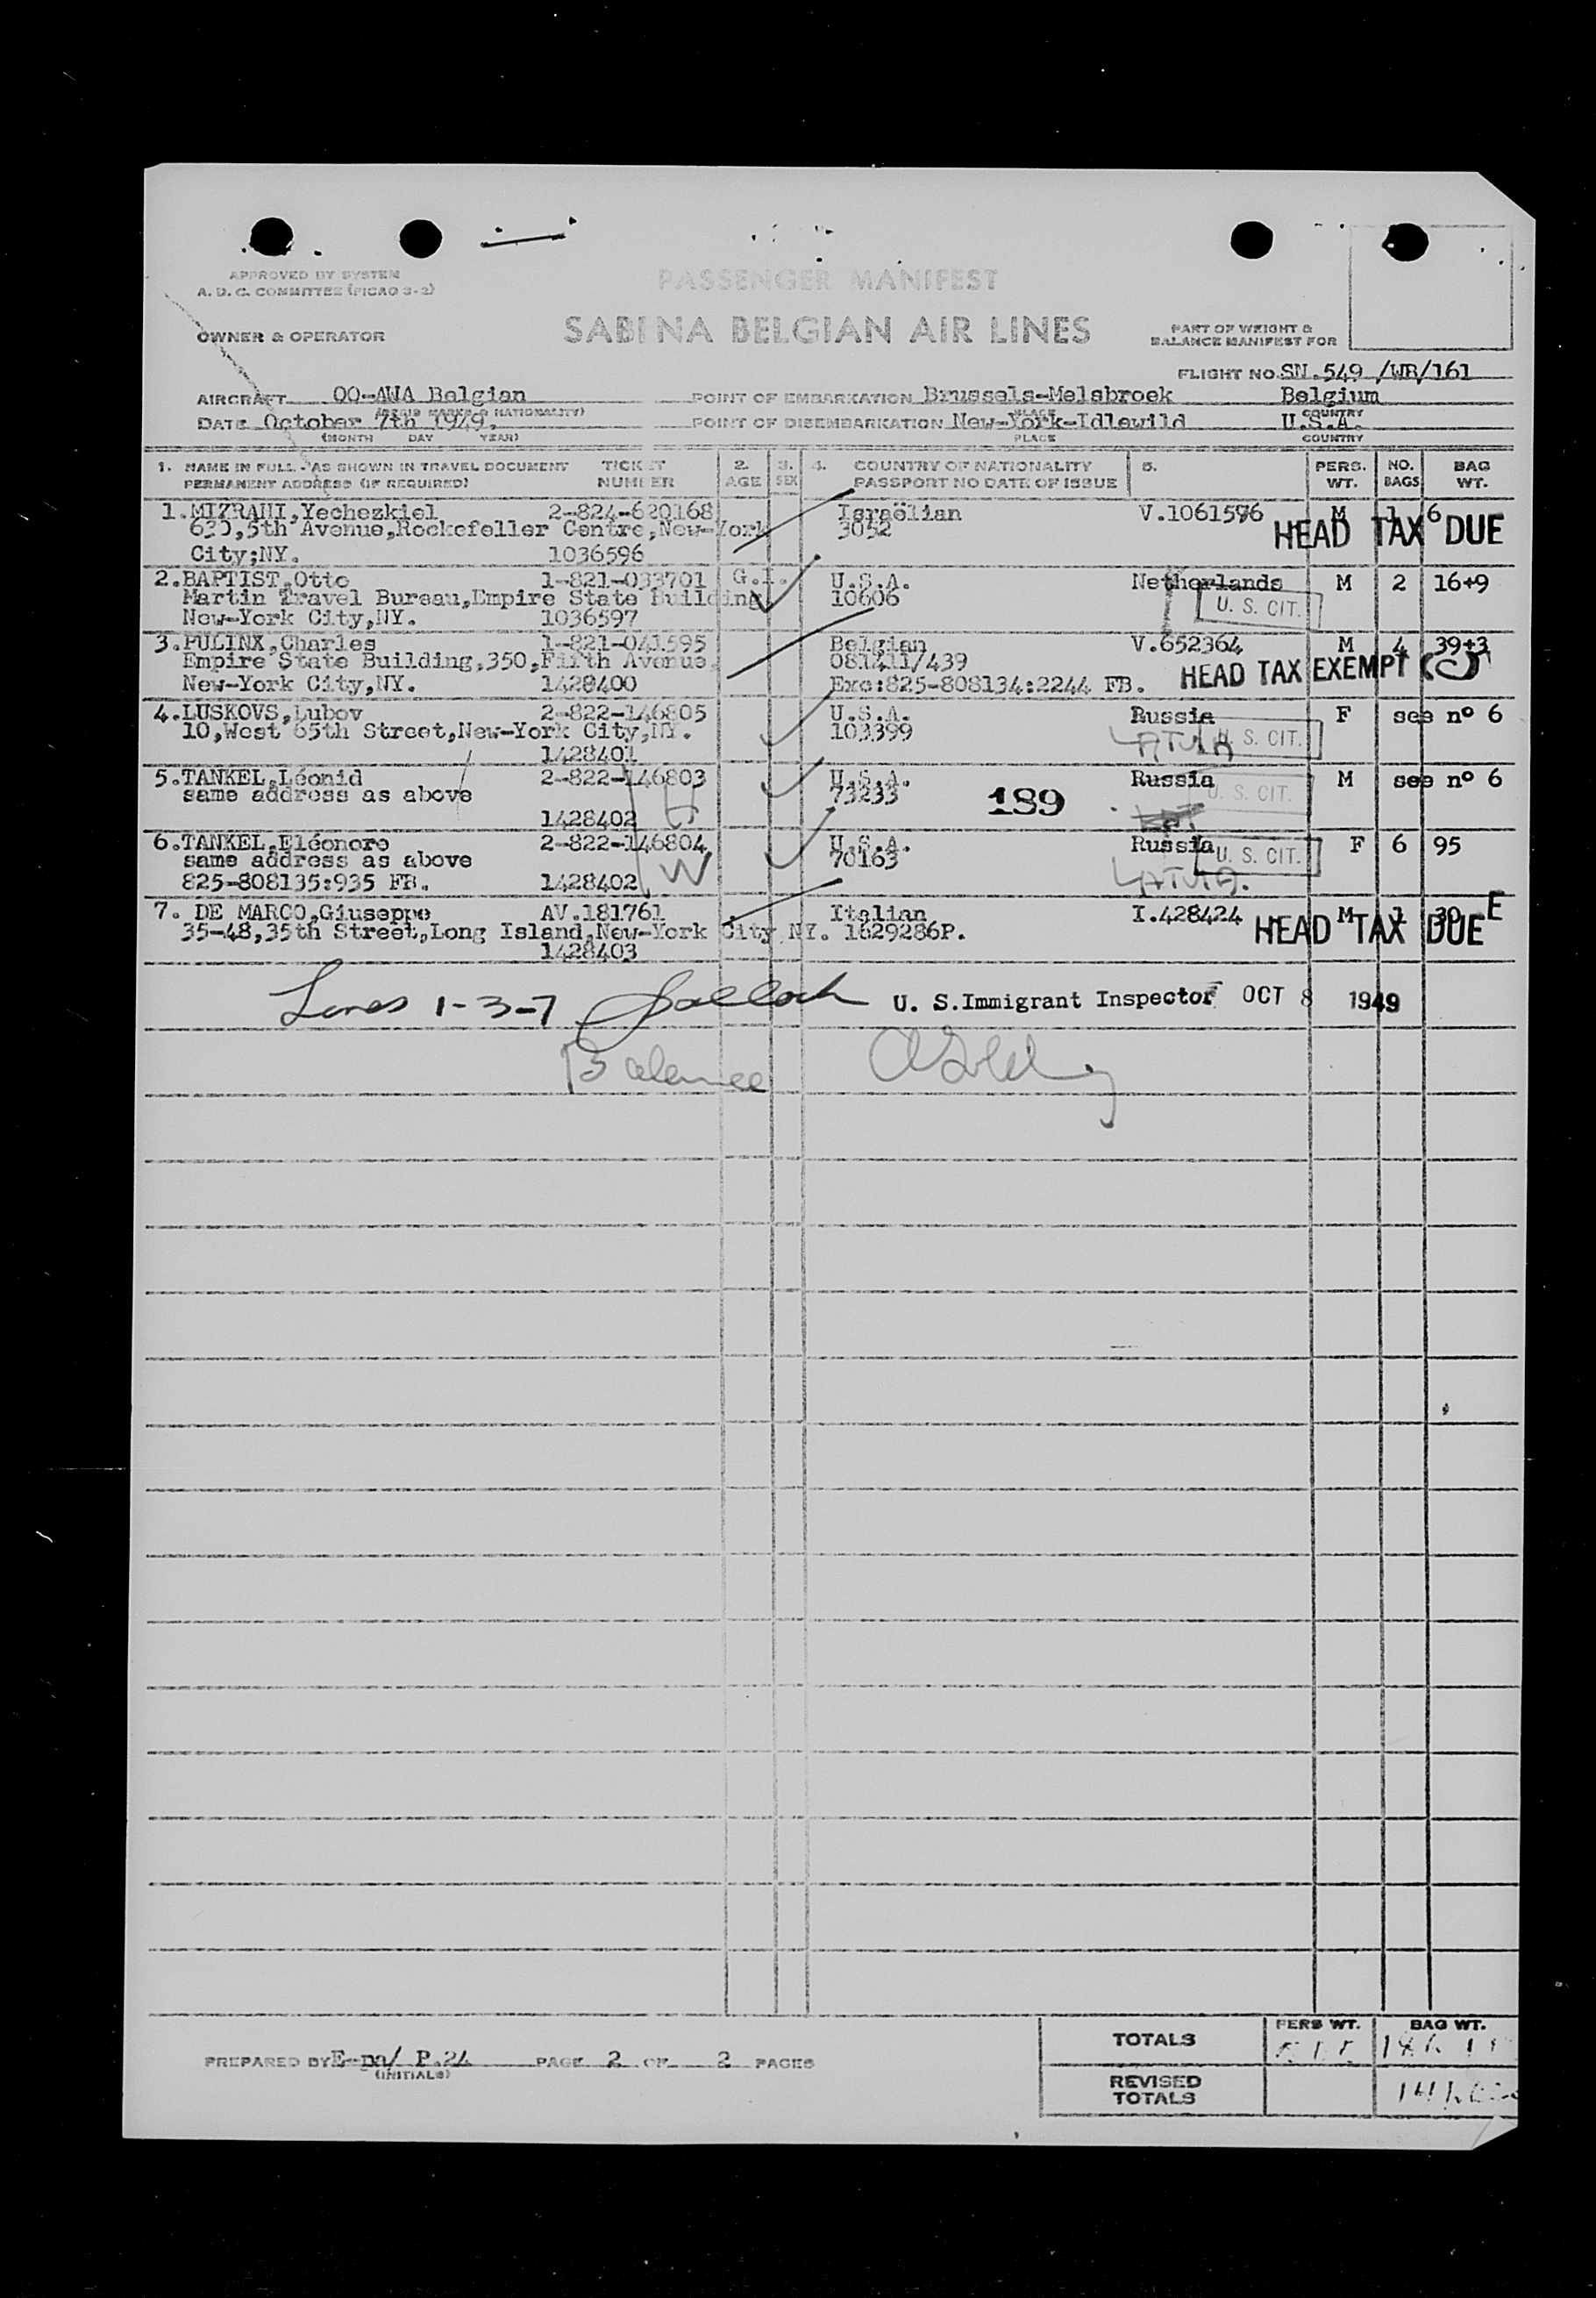 APPROVED BY SYSTEM
A. D. C. COMMITTEE (PICAO 3-2)
PASSENGER MANIFEST
OWNER & OPERATOR
SABENA BELGIAN AIR LINES
PART OF WEIGHT &
BALANCE MANIFEST FOR
FLIGHT NO. SN.549 /WB/161
AIRCRAFT OO-AWA Belgian POINT OF EMBARKATION Brussels-Melsbroek Belgium
(REGIS MARKS & NATIONALITY) PLACE COUNTRY
DATE October 7th 1949. POINT OF DISEMBARKATION New-York-Idlewild U.S.A.
(MONTH DAY YEAR) PLACE COUNTRY
1. NAME IN FULL - AS SHOWN IN TRAVEL DOCUMENT TICKET 2. 3. 4. COUNTRY OF NATIONALITY 5. PERS. NO. BAG
PERMANENT ADDRESS (IF REQUIRED) NUMBER AGE SEX PASSPORT NO DATE OF ISSUE WT. BAGS WT.
1.MIZRAHI,Yechezkiel 2-824-620168 Israëlian V.1061596 M 1 6
630,5th Avenue,Rockefeller Centre,New-York 3052 HEAD TAX DUE
City;NY. 1036596
2.BAPTIST,Otto 1-821-033701 G.I. U.S.A. Netherlands M 2 16+9
Martin Travel Bureau,Empire State Building 10606 U. S. CIT.
New-York City,NY. 1036597
3.PULINX,Charles 1-821-041595 Belgian V.652364 M 4 39+3
Empire State Building,350,Fifth Avenue. 081411/439 HEAD TAX EXEMPT
New-York City,NY. 1428400 Exc:825-808134:2244 FB.
4.LUSKOVS,Lubov 2-822-146805 U.S.A. Russia F see nº 6
10,West 65th Street,New-York City,NY. 103399 LATVIA U. S. CIT.
1428401
5.TANKEL,Léonid 2-822-146803 U.S.A. Russia M see nº 6
same address as above 73233 189 U. S. CIT.
1428402
6.TANKEL,Eléonore 2-822-146804 U.S.A. Russia F 6 95
same address as above 70163 U. S. CIT.
825-808135:935 FB. 1428402 W LATVIA.
7. DE MARCO,Giuseppe AV.181761 Italian I.428424 M 1 30 E
35-48,35th Street,Long Island,New-York City NY. 1629286P. HEAD TAX DUE
1428403
Lines 1-3-7 U. S. Immigrant Inspector OCT 8 1949
Balance
TOTALS PERS WT. BAG WT.
PREPARED BY E-na/ P.24 PAGE 2 OF 2 PAGES
(INITIALS)
REVISED
TOTALS